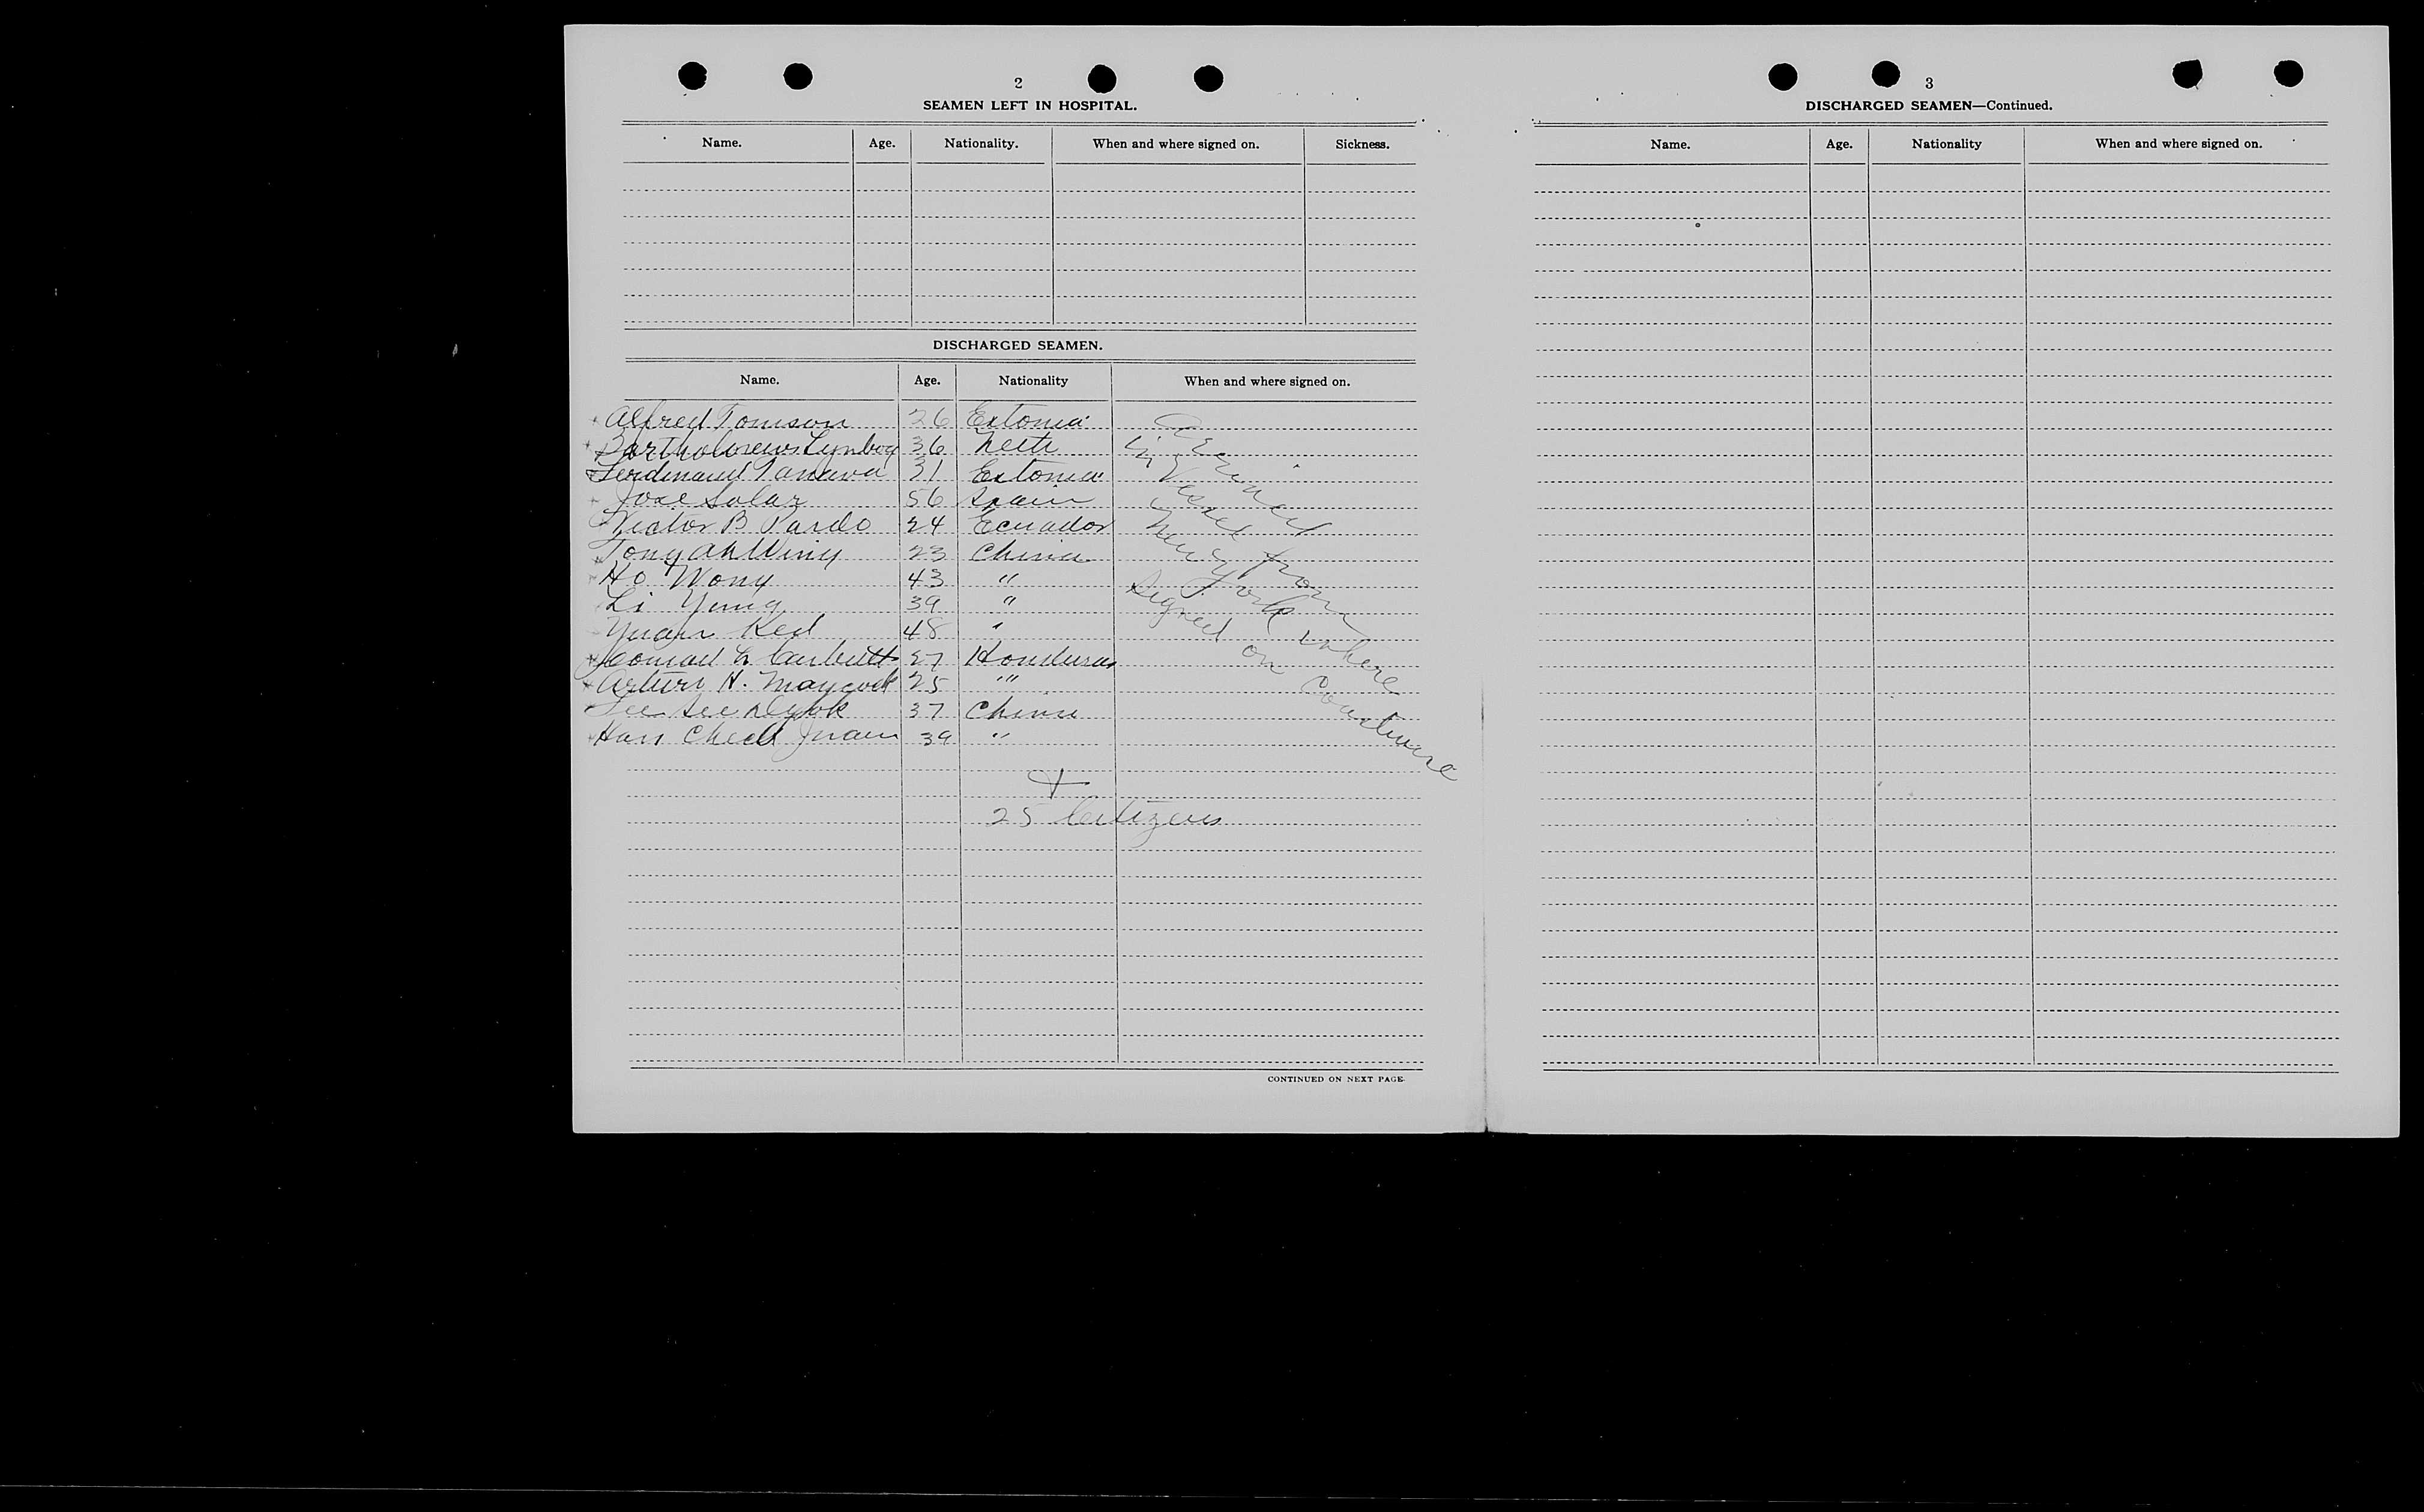 2
SEAMEN LEFT IN HOSPITAL.
Name. Age. Nationality. When and where signed on. Sickness.
DISCHARGED SEAMEN.
Name. Age. Nationality When and where signed on.
Alfred Tomson 26 Estonia
36 Neth
Ferdinand 31 Estonia
Jose Solar 56 Spain
Victor B Pardo 24 Ecuador
Tong Ah Wing 23 China
Ho Wong 43 "
Li Yung 39 "
Yuan Ked 48 "
27 Honduras
Arturo H. Maycock 25 "
Lee See 37 China
39 "
Arrived
in vessel from
New York where
signed on coastwise
+
25 Citizens
CONTINUED ON NEXT PAGE.
3
DISCHARGED SEAMEN—Continued.
Name. Age. Nationality When and where signed on.